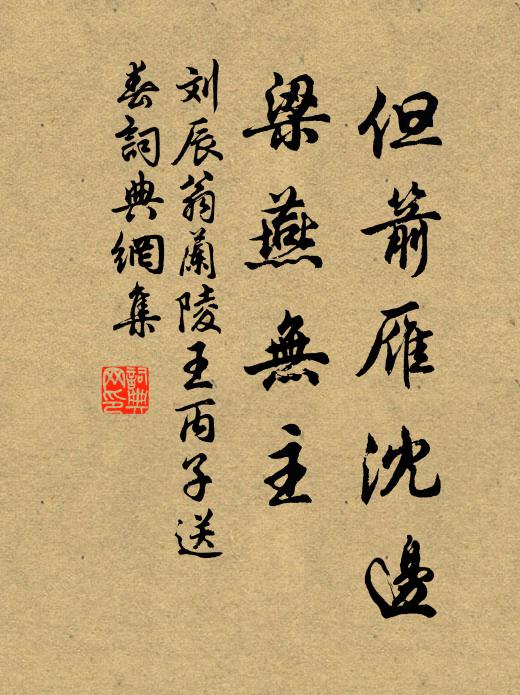 但箭雁沈邊
梁燕無主
刘辰翁蘭陵王丙子送
春詞典網集
詞典
网印